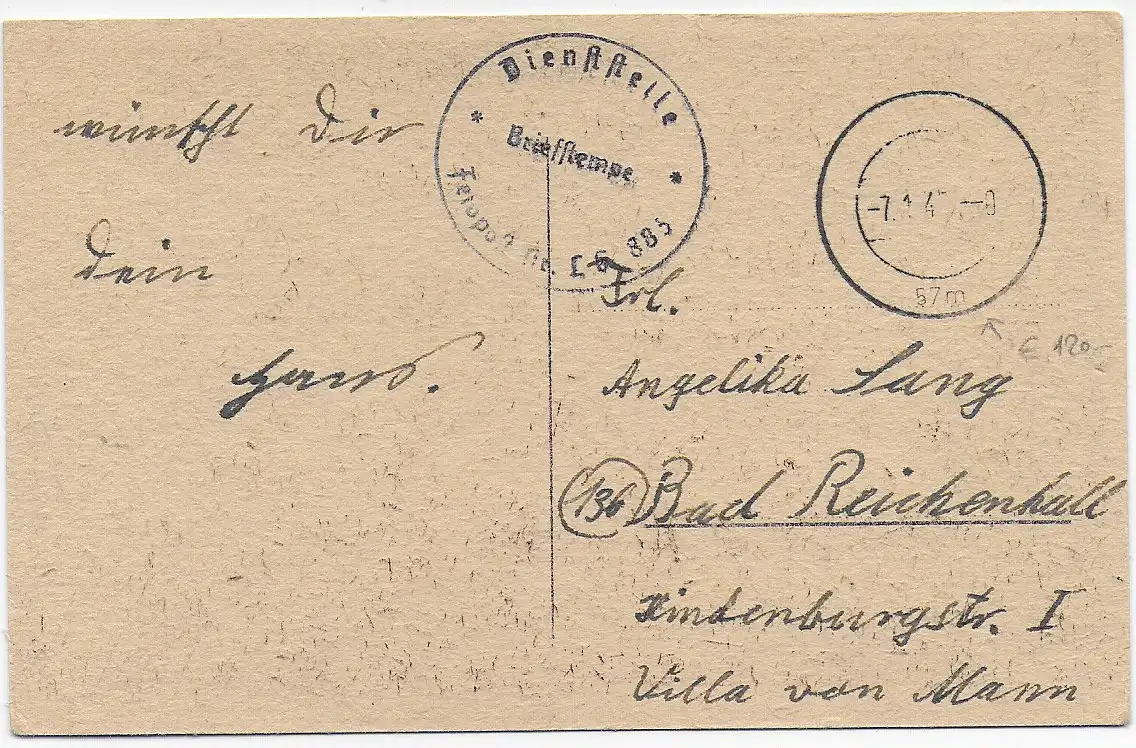 wünscht Dir
Dein
Hans.
* Dienststelle *
Briefstempe
Feldpost Nr. L 6 885
-7.1.4 --8
57m
Frl.
Angelika Lang
(13b) Bad Reichenhall
Hindenburgstr. I
Villa von Mann
120